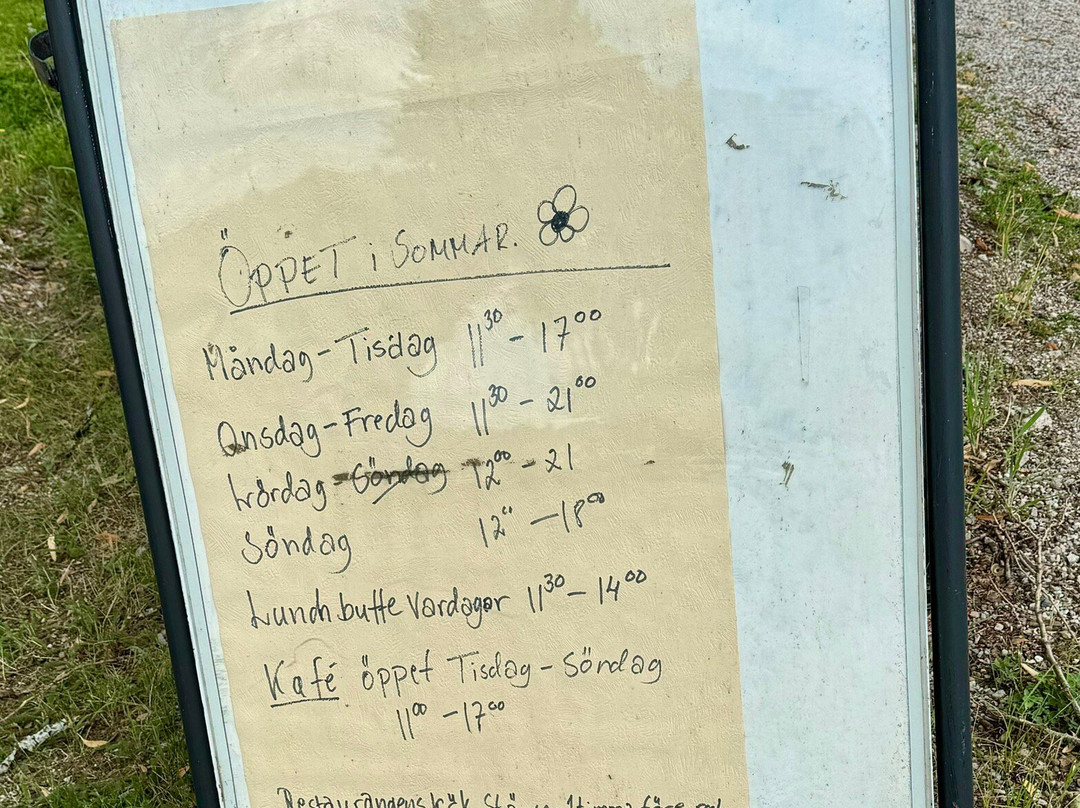 ÖPPET i SOMMAR.
Måndag - Tisdag 11³⁰ - 17⁰⁰
Onsdag - Fredag 11³⁰ - 21⁰⁰
Lördag - Söndag 12⁰⁰ - 21
Söndag 12⁰⁰ - 18⁰⁰
Lunchbuffe Vardagar 11³⁰ - 14⁰⁰
Kafé öppet Tisdag - Söndag
11⁰⁰ - 17⁰⁰
Restaurangens kök